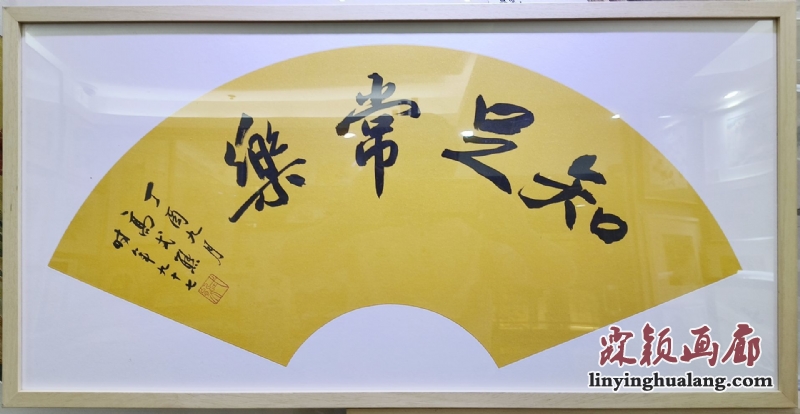 知足常樂
丁酉九月
高式熊
时年九十七
霖颖画廊
linyinghualang.com